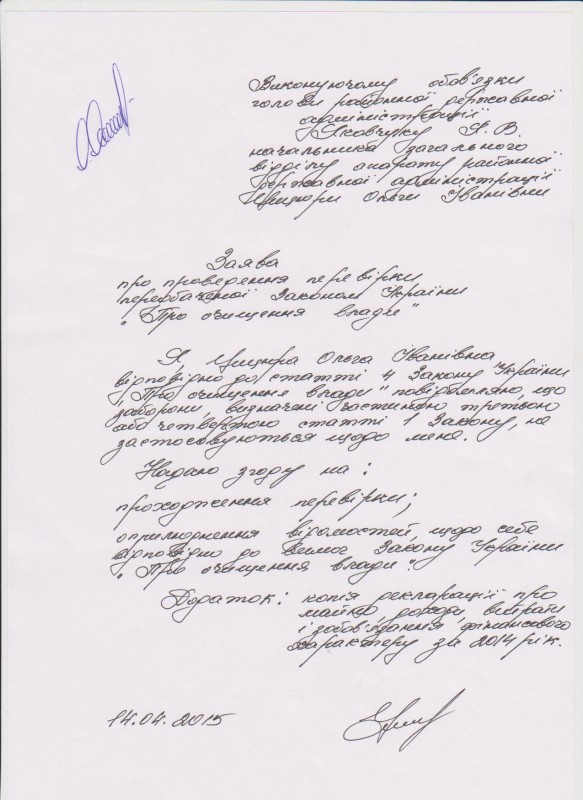 Виконуючому обов'язки
голови районної державної
адміністрації
Яковчуку Я. В.
начальника загального
відділу апарату районної
державної адміністрації
Ольги Іванівни
Заява
про проведення перевірки
передбаченої Законом України
"Про очищення влади"
Я, Ольга Іванівна
відповідно до статті 4 Закону України
"Про очищення влади" повідомляю, що
заборони, визначені частиною третьою
або четвертою статті 1 Закону, не
застосовуються щодо мене.
Надаю згоду на:
проходження перевірки;
оприлюднення відомостей щодо себе
відповідно до вимог Закону України
"Про очищення влади".
Додаток: копія декларації про
майно, доходи, витрати
і зобов'язання фінансового
характеру за 2014 рік.
14.04.2015